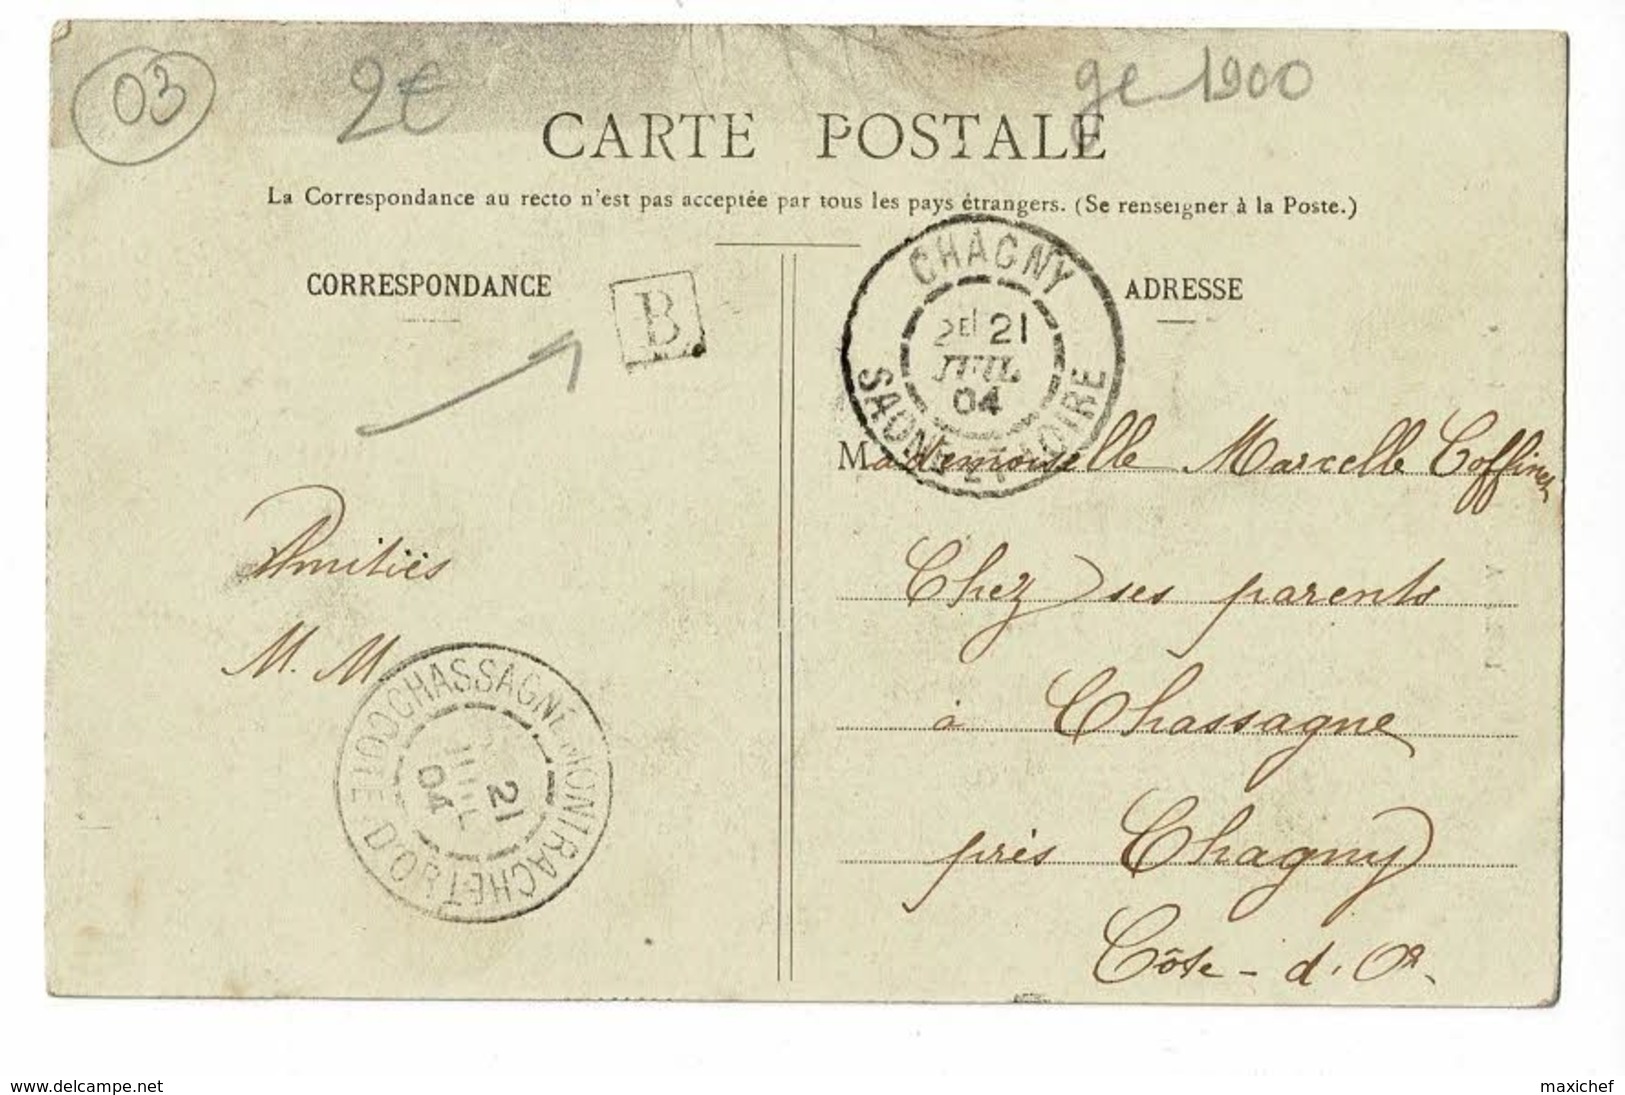 03
2€
ge 1900
CARTE POSTALE
La Correspondance au recto n'est pas acceptée par tous les pays étrangers. (Se renseigner à la Poste.)
CORRESPONDANCE
B
CHAGNY
2E 21
JUIL
04
SAONE-ET-LOIRE
ADRESSE
Mademoiselle Marcelle Coffinet
Chez ses parents
à Chassagne
près Chagny
Côte-d'Or
Amitiés
M. M.
CHASSAGNE-MONTRACHET
21
JUIL
04
COTE D'OR
www.delcampe.net
maxichef